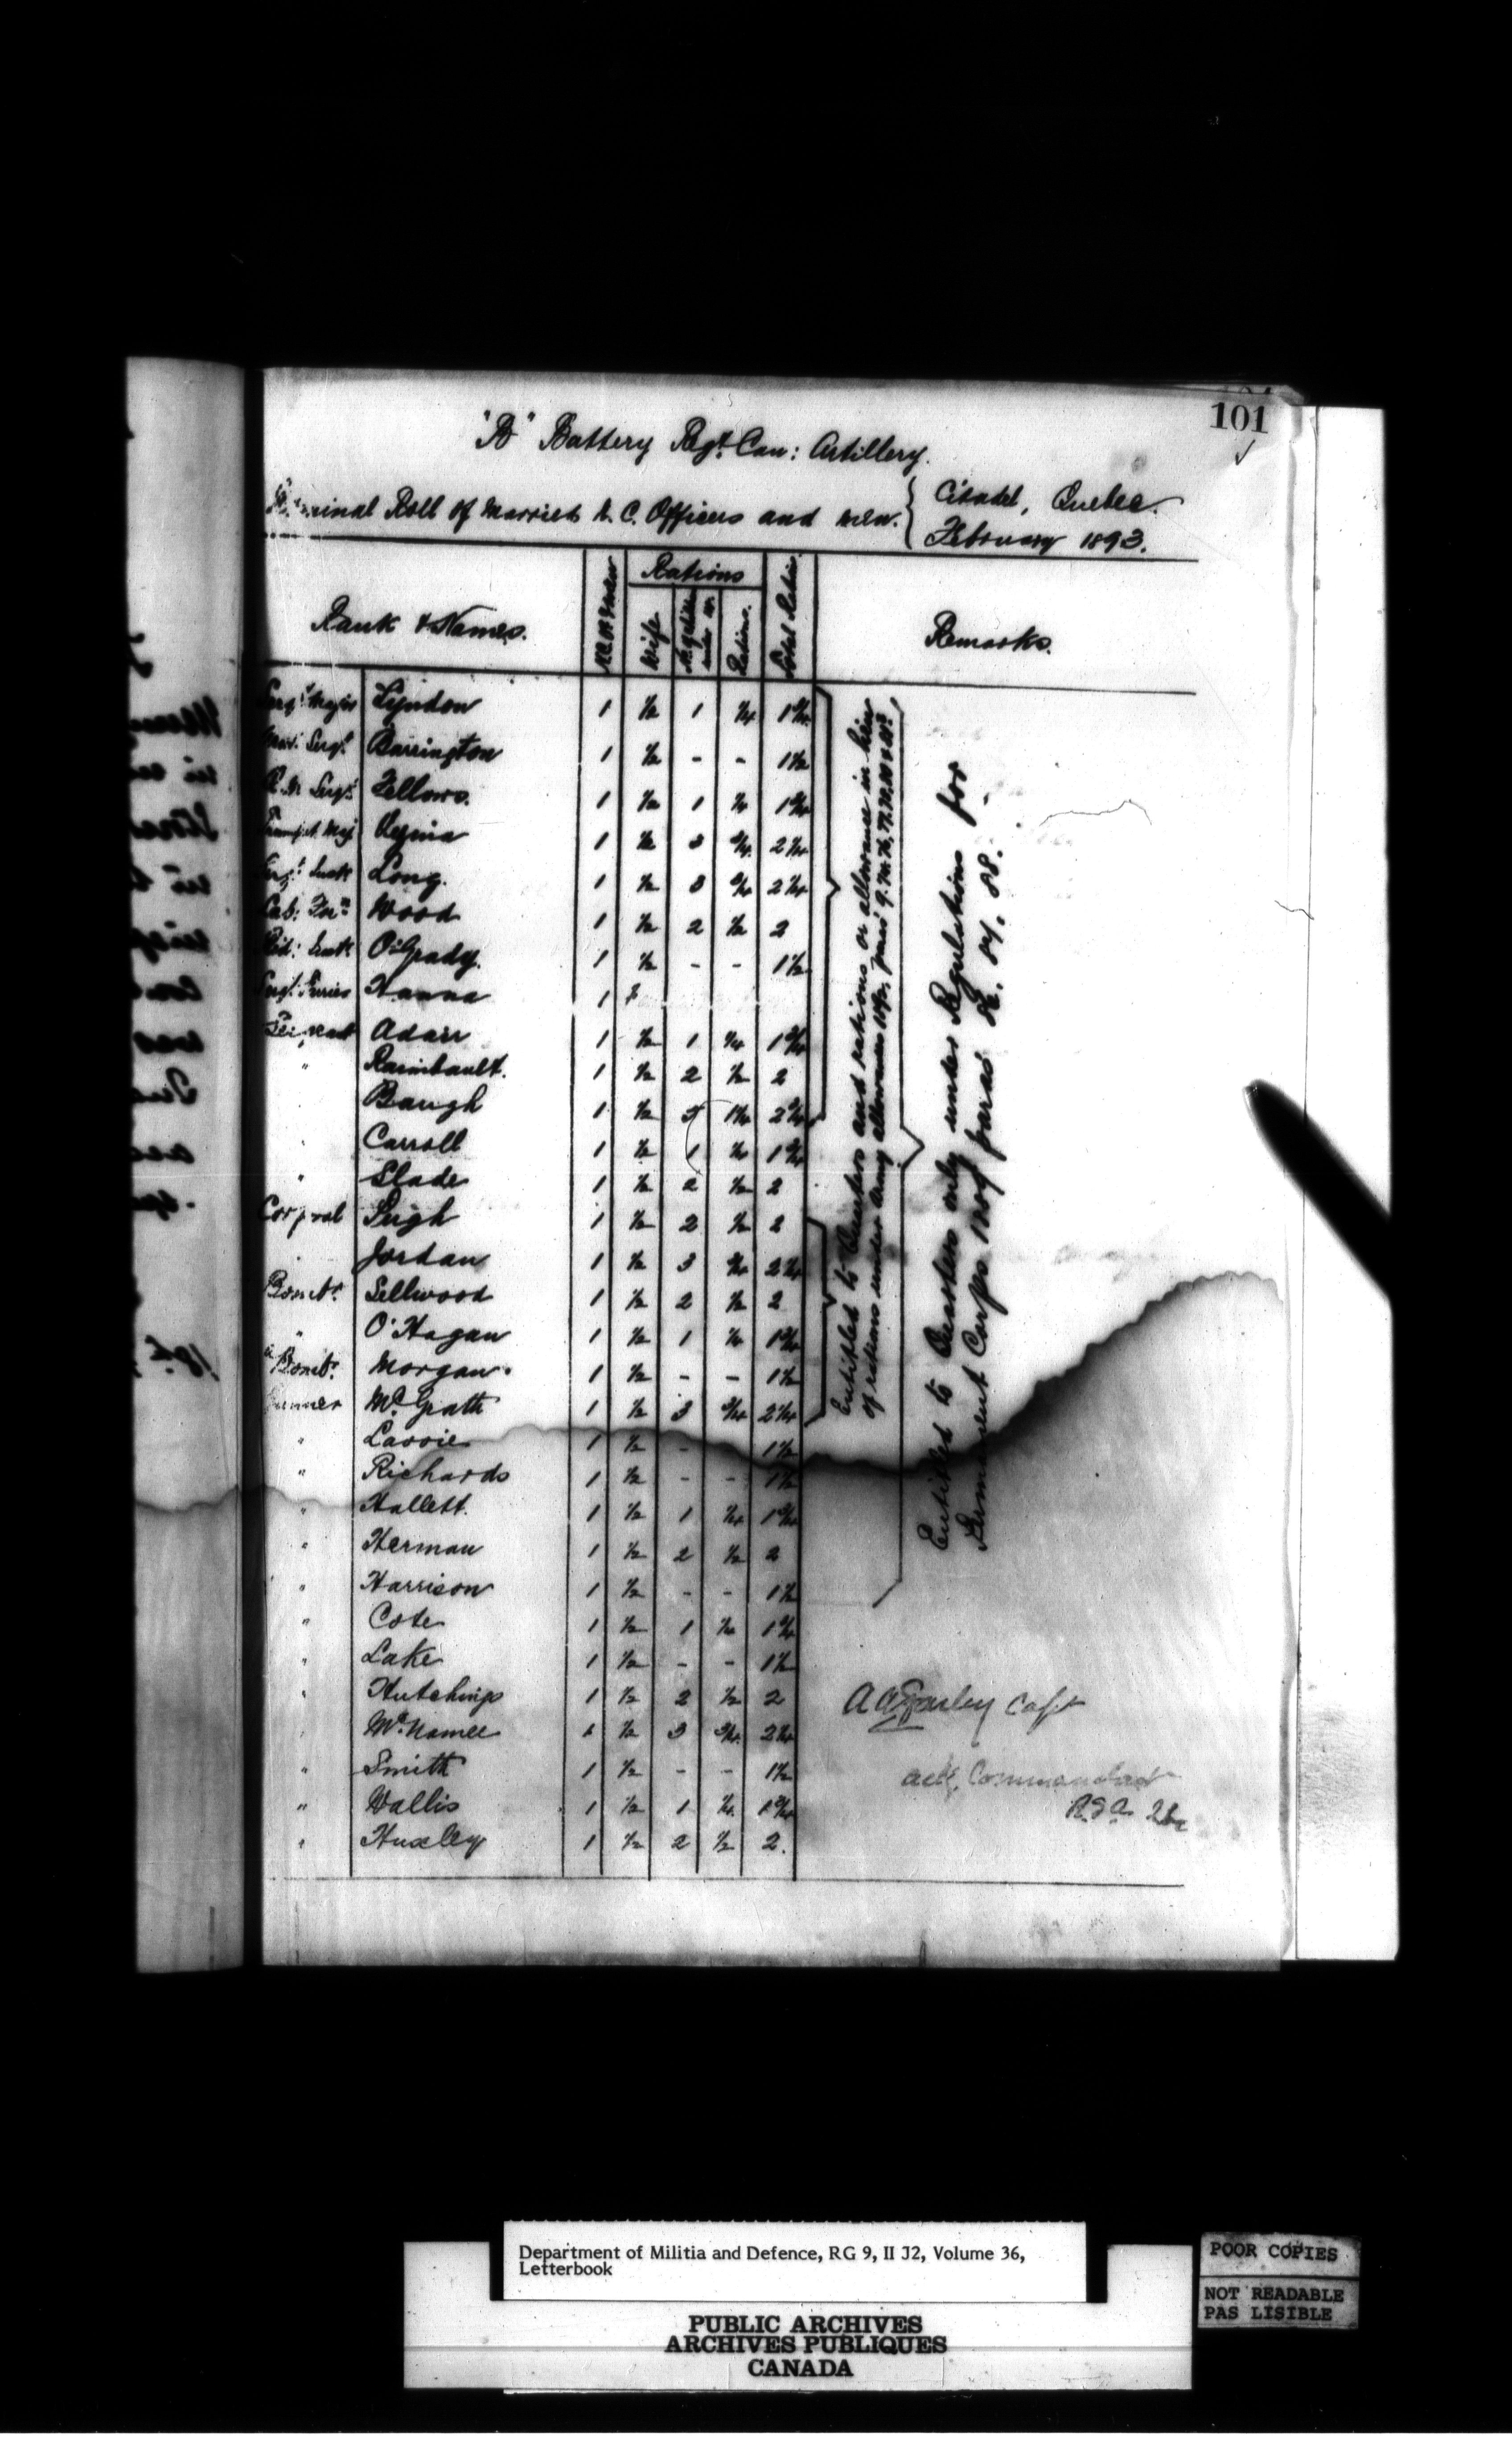 101
"B" Battery Regt. Can: Artillery.
Nominal Roll of Married N. C. Officers and men. { Citadel, Quebec.
February 1893.
Rank & Names.
Rations
Wife
Rations.
Total Rations
Remarks.
Sergt. Major Lyndon 1 ½ 1 ¼ 1¾
Sergt. Barrington 1 ½ - - 1½
Q.M. Sergt. Fellows. 1 ½ 1 ¼ 1¾
Trumpet Maj 1 ½ 3 ¾ 2¼
Long. 1 ½ 3 ¾ 2¼
Wood 1 ½ 2 ½ 2
O'Grady. 1 ½ - - 1½
Hanna 1
Sergeant Adair 1 ½ 1 ¼ 1¾
" Raimbault. 1 ½ 2 ½ 2
Baugh 1 ½ 5 1¼ 2¾
Carroll 1 ½ 1 ¼ 1¾
" Slade 1 ½ 2 ½ 2
Corporal Leigh 1 ½ 2 ½ 2
Jordan 1 ½ 3 ¾ 2¼
Bombr. Sellwood 1 ½ 2 ½ 2
" O'Hagan 1 ½ 1 ¼ 1¾
a Bombr. Morgan. 1 ½ - - 1½
Gunner McGrath 1 ½ 3 ¾ 2¼
" Lavoie 1 ½ - 1½
" Richards 1 ½ - - 1½
" Hallett. 1 ½ 1 ¼ 1¾
" Herman 1 ½ 2 ½ 2
" Harrison 1 ½ - - 1½
" Cote 1 ½ 1 ¼ 1¾
" Lake 1 ½ - - 1½
" Hutchings 1 ½ 2 ½ 2
McNamee 1 ½ 3 ¾ 2¼
" Smith 1 ½ - - 1½
" Wallis 1 ½ 1 ¼ 1¾
" Huxley 1 ½ 2 ½ 2.
Entitled to Quarters and rations or allowance in lieu
of rations under Army allowances
Entitled to Quarters only under Regulations for
Permanent Corps 1889 paras 88.
Farley Capt
actg. Commandant
Department of Militia and Defence, RG 9, II J2, Volume 36,
Letterbook
PUBLIC ARCHIVES
ARCHIVES PUBLIQUES
CANADA
POOR COPIES
NOT READABLE
PAS LISIBLE